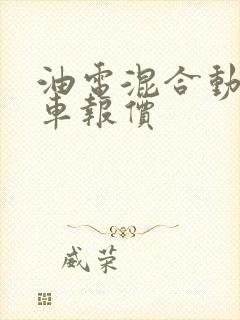 油電混合動
車報價
威荣